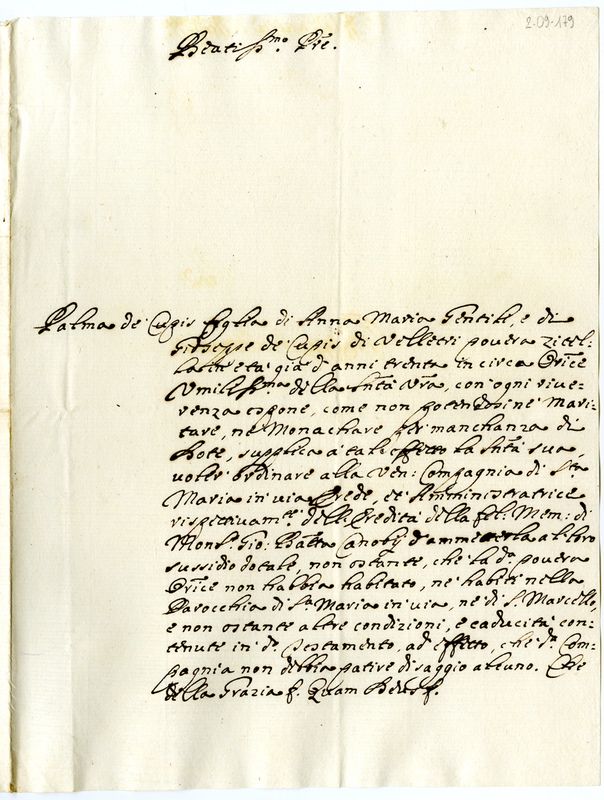 2-09-179
Beatiss.mo Pre.
Palma de Cupis figlia di Anna Maria Gentili, e di
Gioseppe de Cupis di Velletri povera zitel:
la in età già d'anni trenta in circa Orice
Umiliss.ma della Sntà Vra, con ogni rive:
renza espone, come non potendosine mari:
tare, ne Monachare per manchanza di
Dote, supplica a tale effetto la Sntà sua,
voler ordinare alla Ven: Compagnia di S.ta
Maria in via Erede, et Amministratrice
rispettivam.te dell'Eredità della fel: Mem: di
Mons.r Gio: Batta Canobij d'ammetterla a libro
sussidio dotale, non ostante, che la d.a povera
Orice non habbia habitato, ne habiti nella
Parocchia di S.a Maria in via, ne di S. Marcello,
e non ostante altre condizioni, e caducità con:
tenute in d.o Testamento, ad effetto, che d.a Com:
pagnia non debbia patire disaggio alcuno. Che
della Grazia &. Quam Deus &.